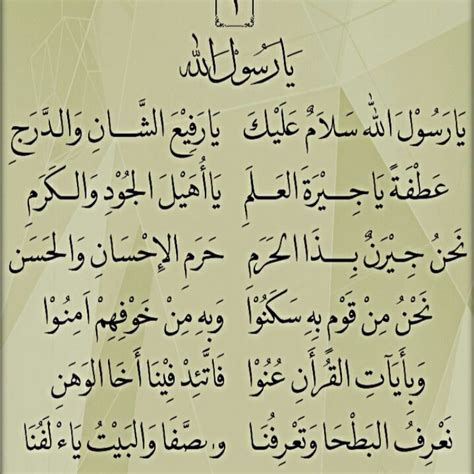 ١
يَا رَسُوْلَ اللّٰه
يَارَسُوْلَ اللّٰه سَلَامٌ عَلَيْكَ يَارَفِيْعَ الشَّانِ وَالدَّرَجِ
عَطْفَةً يَاجِيْرَةَ العَلَمِ يَاأُهَيْلَ الجُوْدِ وَالكَرَمِ
نَحْنُ جِيْرَنٌ بِذَا الحَرَمِ حَرَمِ الإِحْسَانِ وَالحَسَنِ
نَحْنُ مِنْ قَوْمٍ بِهِ سَكَنُوْا وَبِهِ مِنْ خَوْفِهِمْ اَمِنُوْا
وَبِأَيَاتِ القُرْأَنِ عُنُوْا فَاتَّئِدْ فِيْنَا أَخَا الوَهَنِ
نَعْرِفُ البَطْحَا وَتَعْرِفُنَا وصَّفَا وَالبَيْتُ يَاءْلَفُنَا